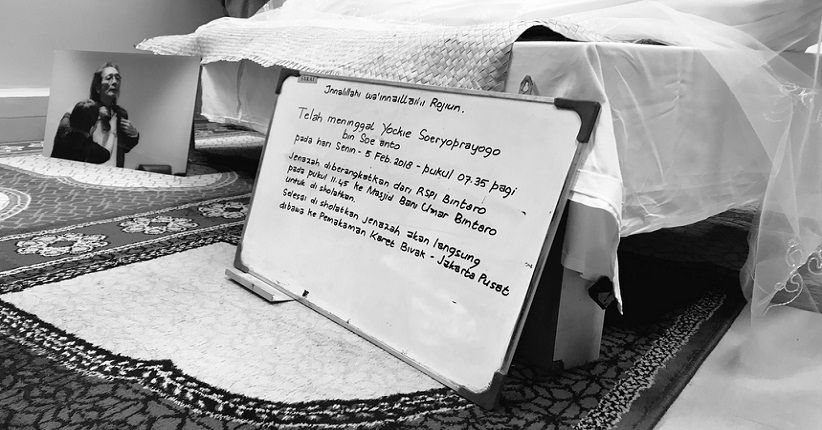 Innalillahi wa'innaillaihi Rojiun.
Telah meninggal Yockie Soeryoprayogo
bin Soe anto
pada hari Senin - 5 Feb. 2018 - pukul 07.35 pagi
Jenazah diberangkatkan dari RSPI Bintaro
pada pukul 11.45 ke Masjid Bani Umar Bintaro
untuk disholatkan.
Selesai disholatkan jenazah akan langsung
dibawa ke Pemakaman Karet Bivak - Jakarta Pusat